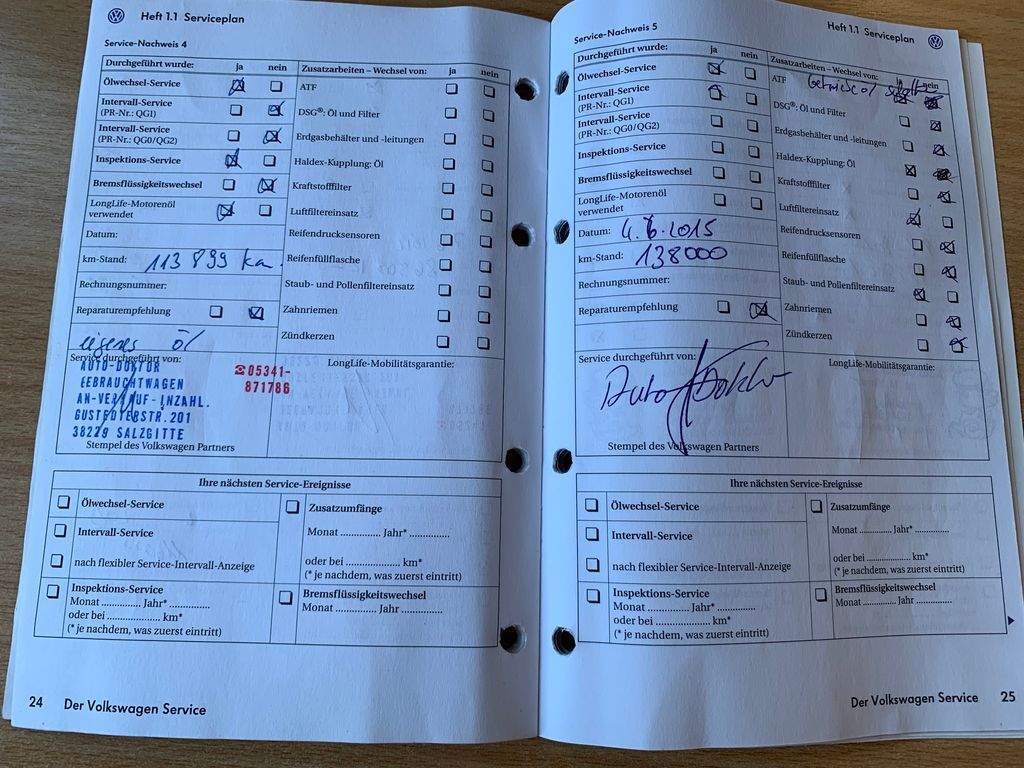 Heft 1.1 Serviceplan
Service-Nachweis 4
Durchgeführt wurde: ja nein
Ölwechsel-Service
Intervall-Service
(PR-Nr.: QG1)
Intervall-Service
(PR-Nr.: QG0/QG2)
Inspektions-Service
Bremsflüssigkeitswechsel
LongLife-Motorenöl
verwendet
Datum:
km-Stand: 113 899 km
Rechnungsnummer:
Reparaturempfehlung
eigenes öl
Zusatzarbeiten – Wechsel von: ja nein
ATF
DSG®: Öl und Filter
Erdgasbehälter und -leitungen
Haldex-Kupplung: Öl
Kraftstofffilter
Luftfiltereinsatz
Reifendrucksensoren
Reifenfüllflasche
Staub- und Pollenfiltereinsatz
Zahnriemen
Zündkerzen
Service durchgeführt von:
AUTO-DOKTOR
GEBRAUCHTWAGEN
AN-VERKAUF-INZAHL.
GUSTEDTERSTR.201
38229 SALZGITTE
☎05341-
871786
Stempel des Volkswagen Partners
LongLife-Mobilitätsgarantie:
Ihre nächsten Service-Ereignisse
Ölwechsel-Service
Intervall-Service
nach flexibler Service-Intervall-Anzeige
Inspektions-Service
Monat .............. Jahr* ..............
oder bei .................... km*
(* je nachdem, was zuerst eintritt)
Zusatzumfänge
Monat .............. Jahr* ..............
oder bei .................... km*
(* je nachdem, was zuerst eintritt)
Bremsflüssigkeitswechsel
Monat .............. Jahr ..............
24 Der Volkswagen Service
Heft 1.1 Serviceplan
Service-Nachweis 5
Durchgeführt wurde: ja nein
Ölwechsel-Service
Intervall-Service
(PR-Nr.: QG1)
Intervall-Service
(PR-Nr.: QG0/QG2)
Inspektions-Service
Bremsflüssigkeitswechsel
LongLife-Motorenöl
verwendet
Datum: 4.6.2015
km-Stand: 138000
Rechnungsnummer:
Reparaturempfehlung
Zusatzarbeiten – Wechsel von: ja nein
ATF Getriebeöl
DSG®: Öl und Filter
Erdgasbehälter und -leitungen
Haldex-Kupplung: Öl
Kraftstofffilter
Luftfiltereinsatz
Reifendrucksensoren
Reifenfüllflasche
Staub- und Pollenfiltereinsatz
Zahnriemen
Zündkerzen
Service durchgeführt von:
Auto Doktor
Stempel des Volkswagen Partners
LongLife-Mobilitätsgarantie:
Ihre nächsten Service-Ereignisse
Ölwechsel-Service
Intervall-Service
nach flexibler Service-Intervall-Anzeige
Inspektions-Service
Monat .............. Jahr* ..............
oder bei .................... km*
(* je nachdem, was zuerst eintritt)
Zusatzumfänge
Monat .............. Jahr* ..............
oder bei .................... km*
(* je nachdem, was zuerst eintritt)
Bremsflüssigkeitswechsel
Monat .............. Jahr ..............
Der Volkswagen Service 25